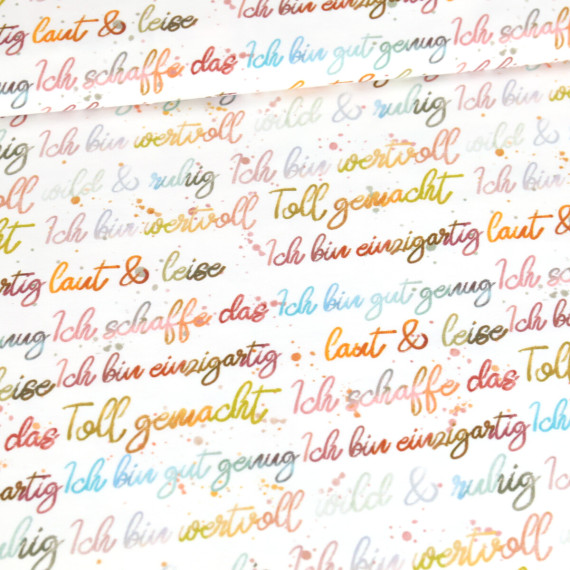 Ich bin einzigartig
rtig laut & leise Ich schaffe
nug Ich schaffe das Ich bin gut genug
Ich bin wertvoll wild & ruhig Ich bin
hig Ich bin wertvoll wild &
oll wild & ruhig Toll gemacht Ich bin
ht Ich bin wertvoll Ich bin einzigartig laut &
rtig laut & leise Ich bin gut genug Ich sch
nug Ich schaffe das laut & leise Ich b
leise Ich bin einzigartig Ich schaffe das Toll
das Toll gemacht Ich bin einzigartig Ich
artig Ich bin gut genug wild & ruhig Ich
uhig Ich bin wertvoll Ich bin wertvoll